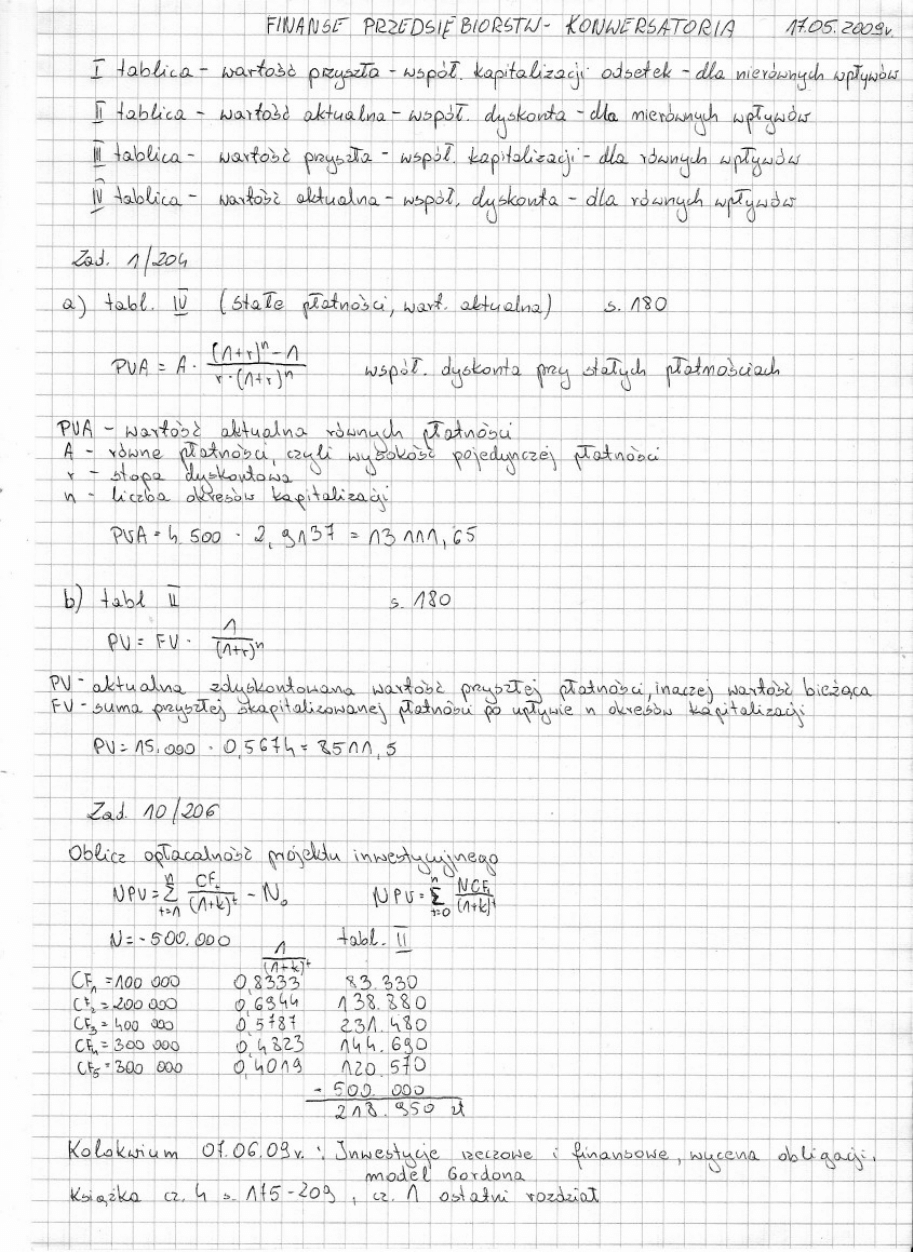 FINANSE PRZEDSIĘBIORSTW - KONWERSATORIA 17.05.2009r.
I tablica - wartość przyszła - współ. kapitalizacji odsetek - dla nierównych wpływów
II tablica - wartość aktualna - współ. dyskonta - dla nierównych wpływów
III tablica - wartość przyszła - współ. kapitalizacji - dla równych wpływów
IV tablica - wartość aktualna - współ. dyskonta - dla równych wpływów
Zad. 1/204
a) tabl. IV (stałe płatności, wart. aktualna) s. 180
PVA = A · ((1+r)^n - 1)/(r·(1+r)^n) współ. dyskonta przy stałych płatnościach
PVA - wartość aktualna równych płatności
A - równe płatności, czyli wysokość pojedynczej płatności
r - stopa dyskontowa
n - liczba okresów kapitalizacji
PVA = 4 500 · 2,9137 = 13 111,65
b) tabl II s. 180
PV = FV · 1/(1+r)^n
PV - aktualna zdyskontowana wartość przyszłej płatności, inaczej wartość bieżąca
FV - suma przyszłej skapitalizowanej płatności po upływie n okresów kapitalizacji
PV = 15.000 · 0,5674 = 8511,5
Zad. 10/206
Oblicz opłacalność projektu inwestycyjnego
NPV = Σ_{t=1}^{n} CF_t/(1+k)^t - N_0 NPV = Σ_{t=0}^{n} NCF_t/(1+k)^t
N = -500.000 1/(1+k)^t tabl. II
CF₁ = 100 000 0,8333 83.330
CF₂ = 200 000 0,6944 138.880
CF₃ = 400 000 0,5787 231.480
CF₄ = 300 000 0,4823 144.690
CF₅ = 300 000 0,4019 120.570
- 500.000
218.950 zł
Kolokwium 07.06.09r. : Inwestycje rzeczowe i finansowe, wycena obligacji,
model Gordona
Książka cz. 4 s. 175-209, cz. 1 ostatni rozdział